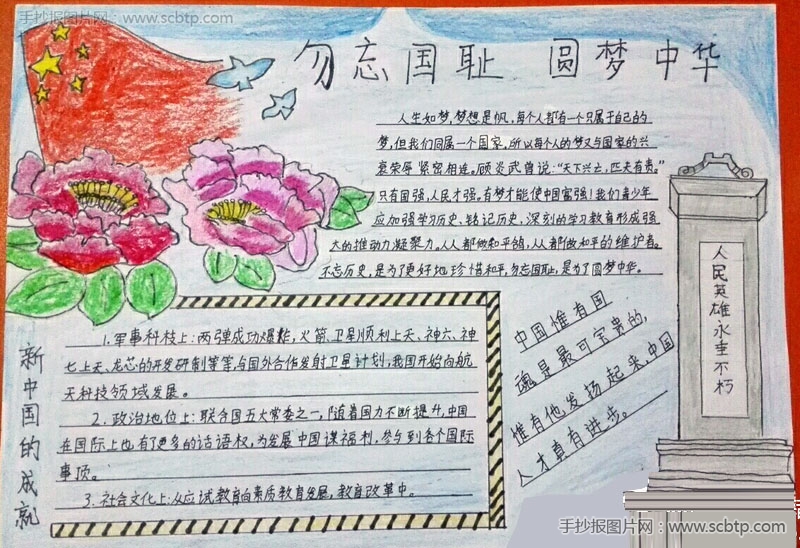 手抄报图片网:www.scbtp.com
勿忘国耻 圆梦中华
人生如梦,梦想是帆,每个人都有一个只属于自己的
梦,但我们同属一个国家,所以每个人的梦又与国家的兴
衰荣辱紧密相连。顾炎武曾说:“天下兴亡,匹夫有责。”
只有国强,人民才强。有梦才能使中国富强!我们青少年
应加强学习历史、铭记历史,深刻的学习教育形成强
大的推动力凝聚力。人人都做和平鸽,从人都做和平的维护者。
不忘历史,是为了更好地珍惜和平,勿忘国耻,是为了圆梦中华。
人民英雄永垂不朽
中国惟有国
魂是最可宝贵的,
惟有他发扬起来,中国
人才真有进步。
新中国的成就
1.军事科技上:两弹成功爆炸,火箭、卫星顺利上天、神六、神
七上天、龙芯的开发研制等等,与国外合作发射卫星计划,我国开始向航
天科技领域发展。
2.政治地位上:联合国五大常委之一,随着国力不断提升,中国
在国际上也有了更多的话语权,为发展中国谋福利,参与到各个国际
事项。
3.社会文化上:从应试教育向素质教育发展,教育改革中。
手抄报图片网:www.scbtp.com